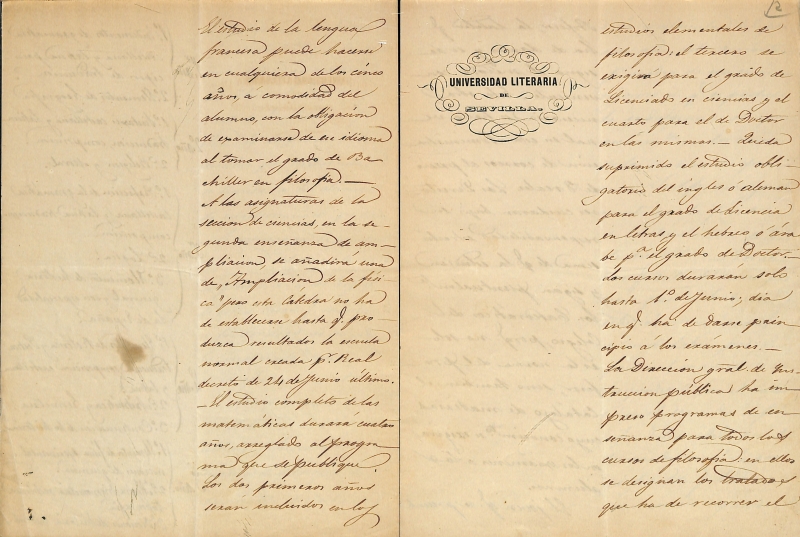 El estudio de la lengua
francesa puede hacerse
en cualquiera de los cinco
años, á comodidad del
alumno, con la obligacion
de examinarse de ese idioma
al tomar el grado de Ba
chiller en filosofia.—
A las asignaturas de la
seccion de ciencias, en la se-
gunda enseñanza de am-
pliacion, se añadirá una
de "Ampliacion de la físi-
ca" pero esta Cátedra no ha
de establecerse hasta q. pro-
duzca resultados la escuela
normal creada p. Real
decreto de 24 de Junio último.
—El estudio completo de las
matemáticas durará cuatro
años, arreglado al progra-
ma que se publique.
Los dos primeros años
seran incluidos en los
2
UNIVERSIDAD LITERARIA
DE
SEVILLA.
estudios elementales de
filosofia: el tercero se
exigirá para el grado de
Licenciado en ciencias y el
cuarto para el de Doctor
en las mismas.— Queda
suprimido el estudio obli-
gatorio del ingles ó aleman
para el grado de Licencia
en letras, y el hebreo ó ára
be p.a el grado de Doctor.
Los cursos duraran solo
hasta 1.o de Junio; dia
en q. ha de darse prin-
cipio á los exámenes.—
La Direccion gral. de Ins-
truccion pública ha im
preso programas de en
señanza para todos los
cursos de filosofia: en ellos
se designan los tratados
que ha de recorrer el